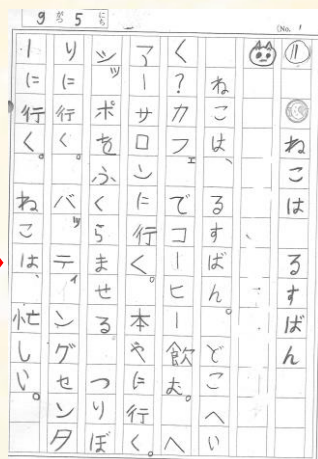 9がつ5にち
No. 1
⑪ ねこは るすばん
ねこは、るすばん。どこへい
く?カフェでコーヒー飲む。ヘ
アーサロンに行く。本やに行く。
シッポをふくらませる つりぼ
りに行く。バッティングセンタ
ーに行く。ねこは、忙しい。